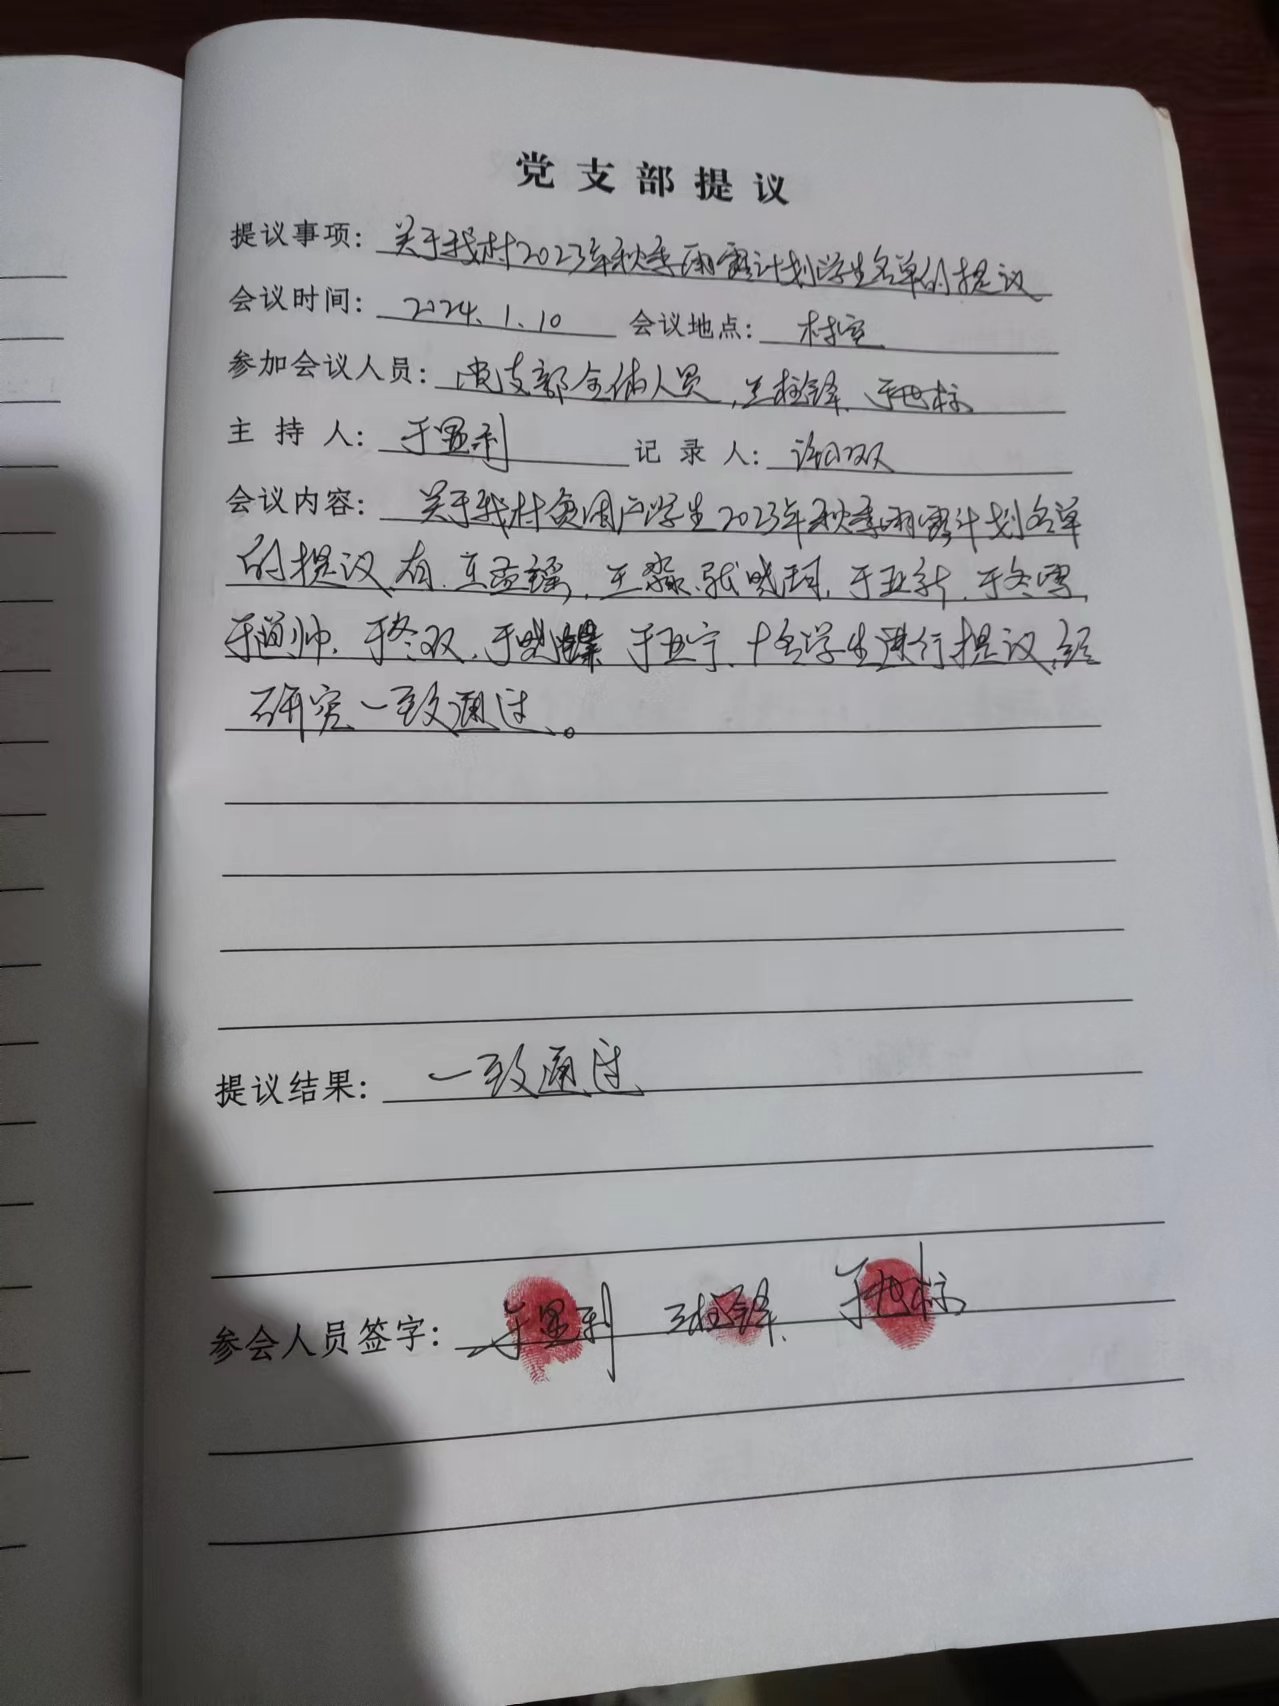 党支部提议
提议事项：关于我村2023年秋季雨露计划学生名单的提议
会议时间：2024.1.10 会议地点：村室
参加会议人员：党支部全体人员，王柱锋、于世标
主持人：于显利 记录人：双
会议内容：关于我村贫困户学生2023年秋季雨露计划名单
的提议，有王孟瑶，王淼，张晓珂，于亚新，于冬雪，
于帅，于冬双，于 于亚宁，十名学生进行提议，经
研究一致通过。
提议结果：一致通过
参会人员签字：于显利 王柱锋、于世标